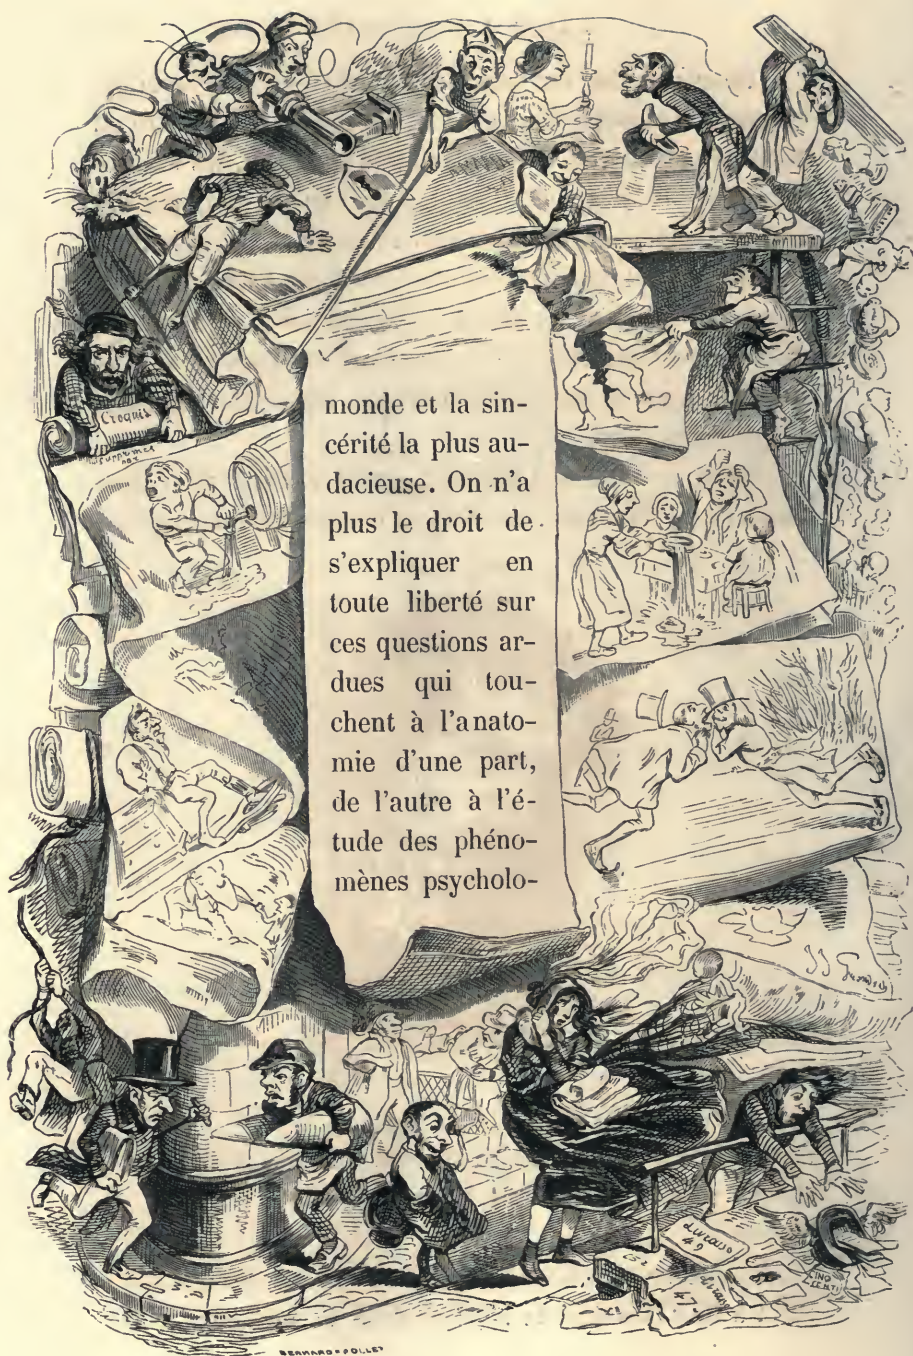 Croquis
monde et la sin-
cérité la plus au-
dacieuse. On n'a
plus le droit de
s'expliquer en
toute liberté sur
ces questions ar-
dues qui tou-
chent à l'anato-
mie d'une part,
de l'autre à l'é-
tude des phéno-
mènes psycholo-
Livraison
49
47
CINQ
BERNARD